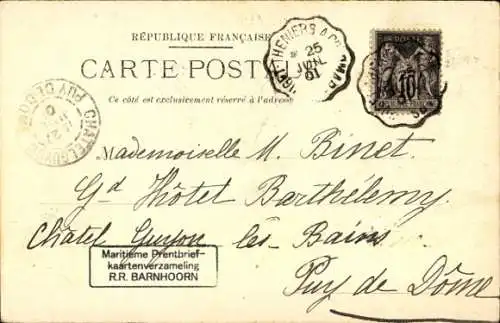 RÉPUBLIQUE FRANÇAISE
CARTE POSTALE
Ce côté est exclusivement réservé à l'adresse
25
JUIL
01
10
CHATELGUYON
PUY DE DOME
Mademoiselle M. Binet
Gd Hôtel Barthélemy
Châtel Guyon les-Bains
Puy de Dôme
Maritieme Prentbrief-
kaartenverzameling
R.R. BARNHOORN